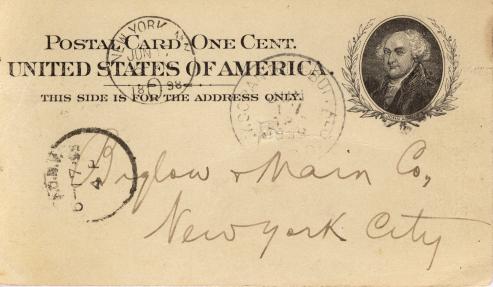 NEW YORK, N.Y.
JUN
98
POSTAL CARD-ONE CENT.
UNITED STATES OF AMERICA.
THIS SIDE IS FOR THE ADDRESS ONLY.
Biglow & Main Co,
New York City